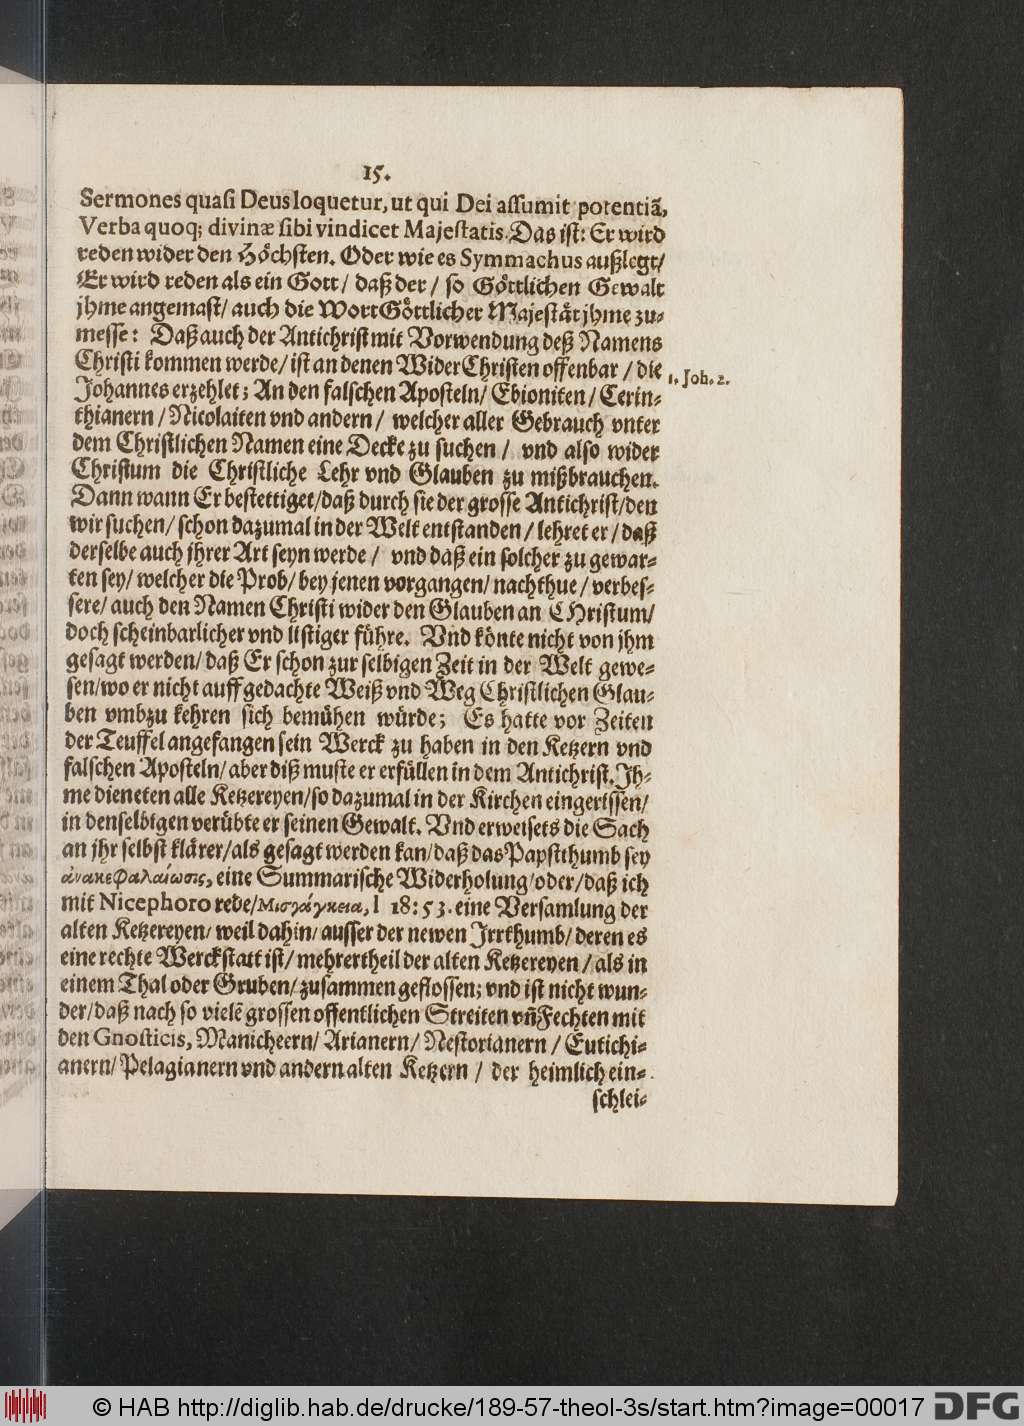 15.
Sermones quasi Deus loquetur, ut qui Dei assumit potentiã,
Verba quoq; divinæ sibi vindicet Majestatis. Das ist: Er wird
reden wider den Höchsten. Oder wie es Symmachus außlegt/
Er wird reden als ein Gott/ daß der/ so Göttlichen Gewalt
jhme angemast/ auch die Wort Göttlicher Majestät jhme zu-
messe: Daß auch der Antichrist mit Vorwendung deß Namens
Christi kommen werde/ ist an denen WiderChristen offenbar/ die
1. Joh. 2.
Johannes erzehlet; An den falschen Aposteln/ Ebioniten/ Cerin-
thianern/ Nicolaiten vnd andern/ welcher aller Gebrauch vnter
dem Christlichen Namen eine Decke zu suchen/ vnd also wider
Christum die Christliche Lehr vnd Glauben zu mißbrauchen.
Dann wann Er bestettiget/ daß durch sie der grosse Antichrist/ den
wir suchen/ schon dazumal in der Welt entstanden/ lehret er/ daß
derselbe auch jhrer Art seyn werde/ vnd daß ein solcher zu gewar-
ten sey/ welcher die Prob/ bey jenen vorgangen/ nachthue/ verbes-
sere/ auch den Namen Christi wider den Glauben an CHristum/
doch scheinbarlicher vnd listiger führe. Vnd könte nicht von jhm
gesagt werden/ daß Er schon zur selbigen Zeit in der Welt gewe-
sen/ wo er nicht auff gedachte Weiß vnd Weg Christlichen Glau-
ben vmbzu kehren sich bemühen würde; Es hatte vor Zeiten
der Teuffel angefangen sein Werck zu haben in den Ketzern vnd
falschen Aposteln/ aber diß muste er erfüllen in dem Antichrist. Jh-
me dieneten alle Ketzereyen/ so dazumal in der Kirchen eingerissen/
in denselbigen verübte er seinen Gewalt. Vnd erweisets die Sach
an jhr selbst klärer/ als gesagt werden kan/ daß das Papstthumb sey
ἀνακεφαλαίωσις, eine Summarische Widerholung/ oder/ daß ich
mit Nicephoro rede/ Μισγάγκεια, l 18: 53. eine Versamlung der
alten Ketzereyen/ weil dahin/ ausser der newen Jrrthumb/ deren es
eine rechte Werckstatt ist/ mehrertheil der alten Ketzereyen/ als in
einem Thal oder Gruben/ zusammen geflossen; vnd ist nicht wun-
der/ daß nach so vielẽ grossen offentlichen Streiten vñ Fechten mit
den Gnosticis, Manicheern/ Arianern/ Nestorianern/ Eutichi-
anern/ Pelagianern vnd andern alten Ketzern/ der heimlich ein-
schlei-
© HAB http://diglib.hab.de/drucke/189-57-theol-3s/start.htm?image=00017
DFG